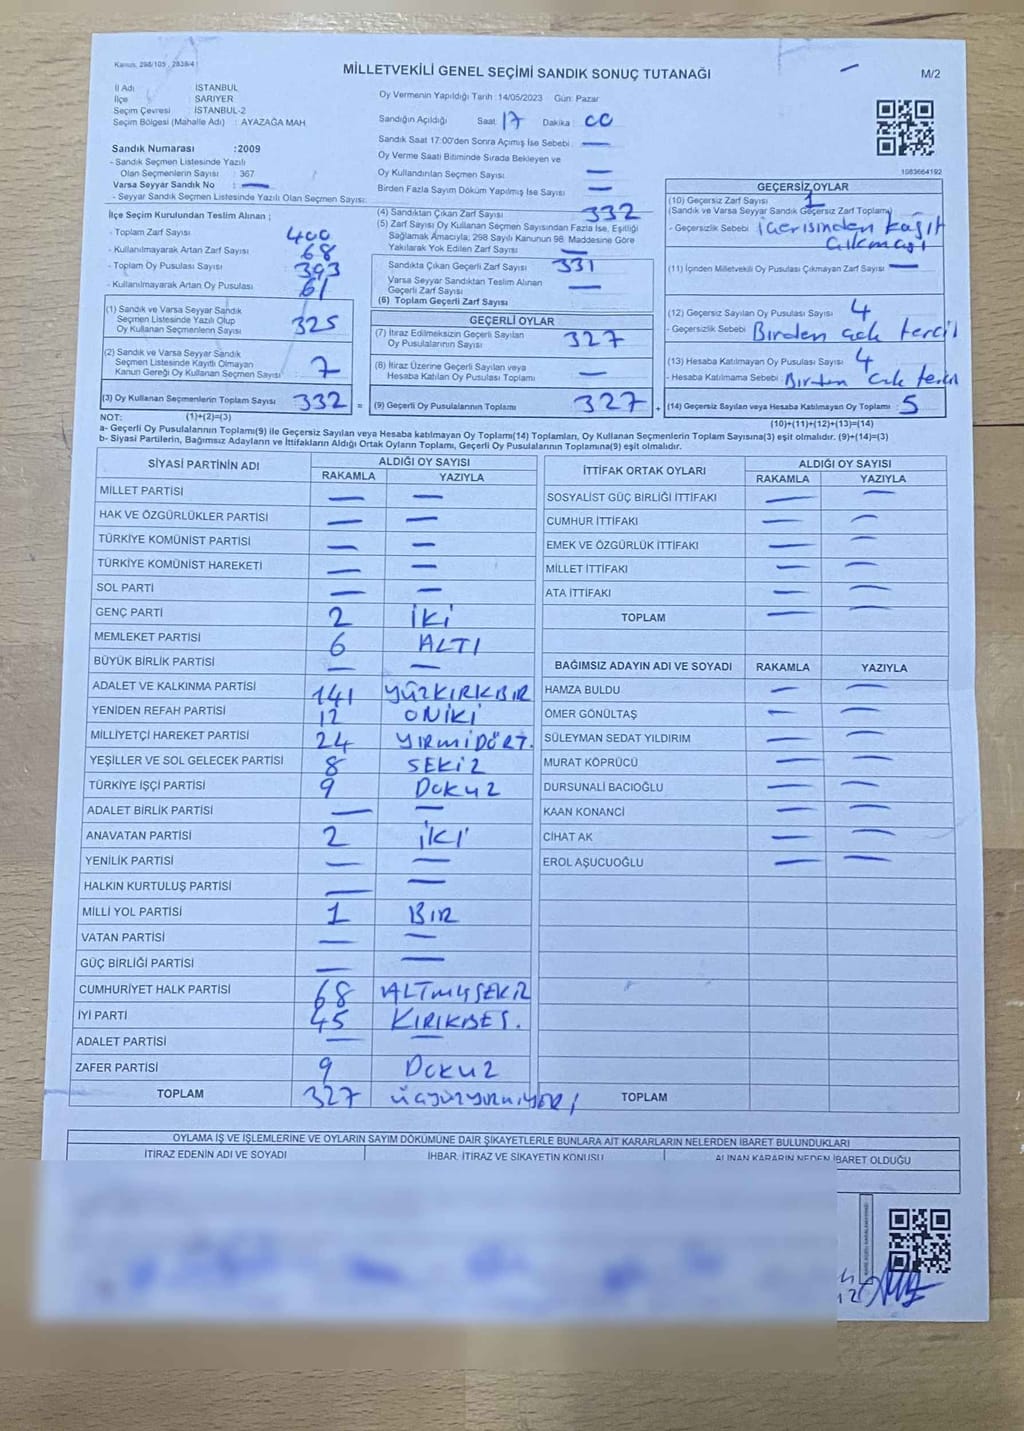 Kanus, 298/105 , 2839/41
MİLLETVEKİLİ GENEL SEÇİMİ SANDIK SONUÇ TUTANAĞI
M/2
İl Adı : İSTANBUL
İlçe : SARIYER
Seçim Çevresi : İSTANBUL-2
Seçim Bölgesi (Mahalle Adı) : AYAZAĞA MAH
Oy Vermenin Yapıldığı Tarih :14/05/2023 Gün: Pazar
Sandığın Açıldığı Saat 17 Dakika 00
Sandık Saat 17:00'den Sonra Açımış İse Sebebi —
Oy Verme Saati Bitiminde Sırada Bekleyen ve
Oy Kullandırılan Seçmen Sayısı —
Birden Fazla Sayım Döküm Yapılmış İse Sayısı —
Sandık Numarası :2009
- Sandık Seçmen Listesinde Yazılı
Olan Seçmenlerin Sayısı : 367
Varsa Seyyar Sandık No : —
- Seyyar Sandık Seçmen Listesinde Yazılı Olan Seçmen Sayısı:
1083664192
İlçe Seçim Kurulundan Teslim Alınan ;
- Toplam Zarf Sayısı : 400
- Kullanılmayarak Artan Zarf Sayısı : 68
- Toplam Oy Pusulası Sayısı : 393
- Kullanılmayarak Artan Oy Pusulası : 61
(1) Sandık ve Varsa Seyyar Sandık
Seçmen Listesinde Yazılı Olup
Oy Kullanan Seçmenlerin Sayısı : 325
(2) Sandık ve Varsa Seyyar Sandık
Seçmen Listesinde Kayıtlı Olmayan
Kanun Gereği Oy Kullanan Seçmen Sayısı : 7
(3) Oy Kullanan Seçmenlerin Toplam Sayısı : 332 =
(4) Sandıktan Çıkan Zarf Sayısı 332
(5) Zarf Sayısı Oy Kullanan Seçmen Sayısından Fazla İse, Eşitliği
Sağlamak Amacıyla; 298 Sayılı Kanunun 98. Maddesine Göre
Yakılarak Yok Edilen Zarf Sayısı —
Sandıkta Çıkan Geçerli Zarf Sayısı 331
Varsa Seyyar Sandıktan Teslim Alınan
Geçerli Zarf Sayısı —
(6) Toplam Geçerli Zarf Sayısı
GEÇERLİ OYLAR
(7) İtiraz Edilmeksizin Geçerli Sayılan
Oy Pusulalarının Sayısı : 327
(8) İtiraz Üzerine Geçerli Sayılan veya
Hesaba Katılan Oy Pusulası Toplamı : —
(9) Geçerli Oy Pusulalarının Toplamı : 327 +
GEÇERSİZ OYLAR
(10) Geçersiz Zarf Sayısı : 1
(Sandık ve Varsa Seyyar Sandık Geçersiz Zarf Toplamı)
- Geçersizlik Sebebi içerisinden kağıt
çıkması
(11) İçinden Milletvekili Oy Pusulası Çıkmayan Zarf Sayısı : —
(12) Geçersiz Sayılan Oy Pusulası Sayısı : 4
Geçersizlik Sebebi : Birden çok tercil
(13) Hesaba Katılmayan Oy Pusulası Sayısı : 4
- Hesaba Katılmama Sebebi : Birden çok
(14) Geçersiz Sayılan veya Hesaba Katılmayan Oy Toplamı : 5
NOT: (1)+(2)=(3) (10)+(11)+(12)+(13)=(14)
a- Geçerli Oy Pusulalarının Toplamı(9) ile Geçersiz Sayılan veya Hesaba katılmayan Oy Toplamı(14) Toplamları, Oy Kullanan Seçmenlerin Toplam Sayısına(3) eşit olmalıdır. (9)+(14)=(3)
b- Siyasi Partilerin, Bağımsız Adayların ve İttifakların Aldığı Ortak Oyların Toplamı, Geçerli Oy Pusulalarının Toplamına(9) eşit olmalıdır.
SİYASİ PARTİNİN ADI ALDIĞI OY SAYISI
RAKAMLA YAZIYLA
MİLLET PARTİSİ — —
HAK VE ÖZGÜRLÜKLER PARTİSİ — —
TÜRKİYE KOMÜNİST PARTİSİ — —
TÜRKİYE KOMÜNİST HAREKETİ — —
SOL PARTİ — —
GENÇ PARTİ 2 İKİ
MEMLEKET PARTİSİ 6 ALTI
BÜYÜK BİRLİK PARTİSİ — —
ADALET VE KALKINMA PARTİSİ 141 YÜZKIRKBİR
YENİDEN REFAH PARTİSİ 12 ONİKİ
MİLLİYETÇİ HAREKET PARTİSİ 24 YİRMİDÖRT.
YEŞİLLER VE SOL GELECEK PARTİSİ 8 SEKİZ
TÜRKİYE İŞÇİ PARTİSİ 9 DOKUZ
ADALET BİRLİK PARTİSİ — —
ANAVATAN PARTİSİ 2 İKİ
YENİLİK PARTİSİ — —
HALKIN KURTULUŞ PARTİSİ — —
MİLLİ YOL PARTİSİ 1 BİR
VATAN PARTİSİ — —
GÜÇ BİRLİĞİ PARTİSİ — —
CUMHURİYET HALK PARTİSİ 68 ALTMIŞSEKİZ
İYİ PARTİ 45 KIRIKBEŞ.
ADALET PARTİSİ — —
ZAFER PARTİSİ 9 DOKUZ
TOPLAM 327
İTTİFAK ORTAK OYLARI ALDIĞI OY SAYISI
RAKAMLA YAZIYLA
SOSYALİST GÜÇ BİRLİĞİ İTTİFAKI — —
CUMHUR İTTİFAKI — —
EMEK VE ÖZGÜRLÜK İTTİFAKI — —
MİLLET İTTİFAKI — —
ATA İTTİFAKI — —
TOPLAM — —
BAĞIMSIZ ADAYIN ADI VE SOYADI RAKAMLA YAZIYLA
HAMZA BULDU — —
ÖMER GÖNÜLTAŞ — —
SÜLEYMAN SEDAT YILDIRIM — —
MURAT KÖPRÜCÜ — —
DURSUNALİ BACIOĞLU — —
KAAN KONANCİ — —
CİHAT AK — —
EROL AŞUCUOĞLU — —
TOPLAM
OYLAMA İŞ VE İŞLEMLERİNE VE OYLARIN SAYIM DÖKÜMÜNE DAİR ŞİKAYETLERLE BUNLARA AİT KARARLARIN NELERDEN İBARET BULUNDUKLARI
İTİRAZ EDENİN ADI VE SOYADI İHBAR, İTİRAZ VE ŞİKAYETİN KONUSU ALINAN KARARIN NEDEN İBARET OLDUĞU